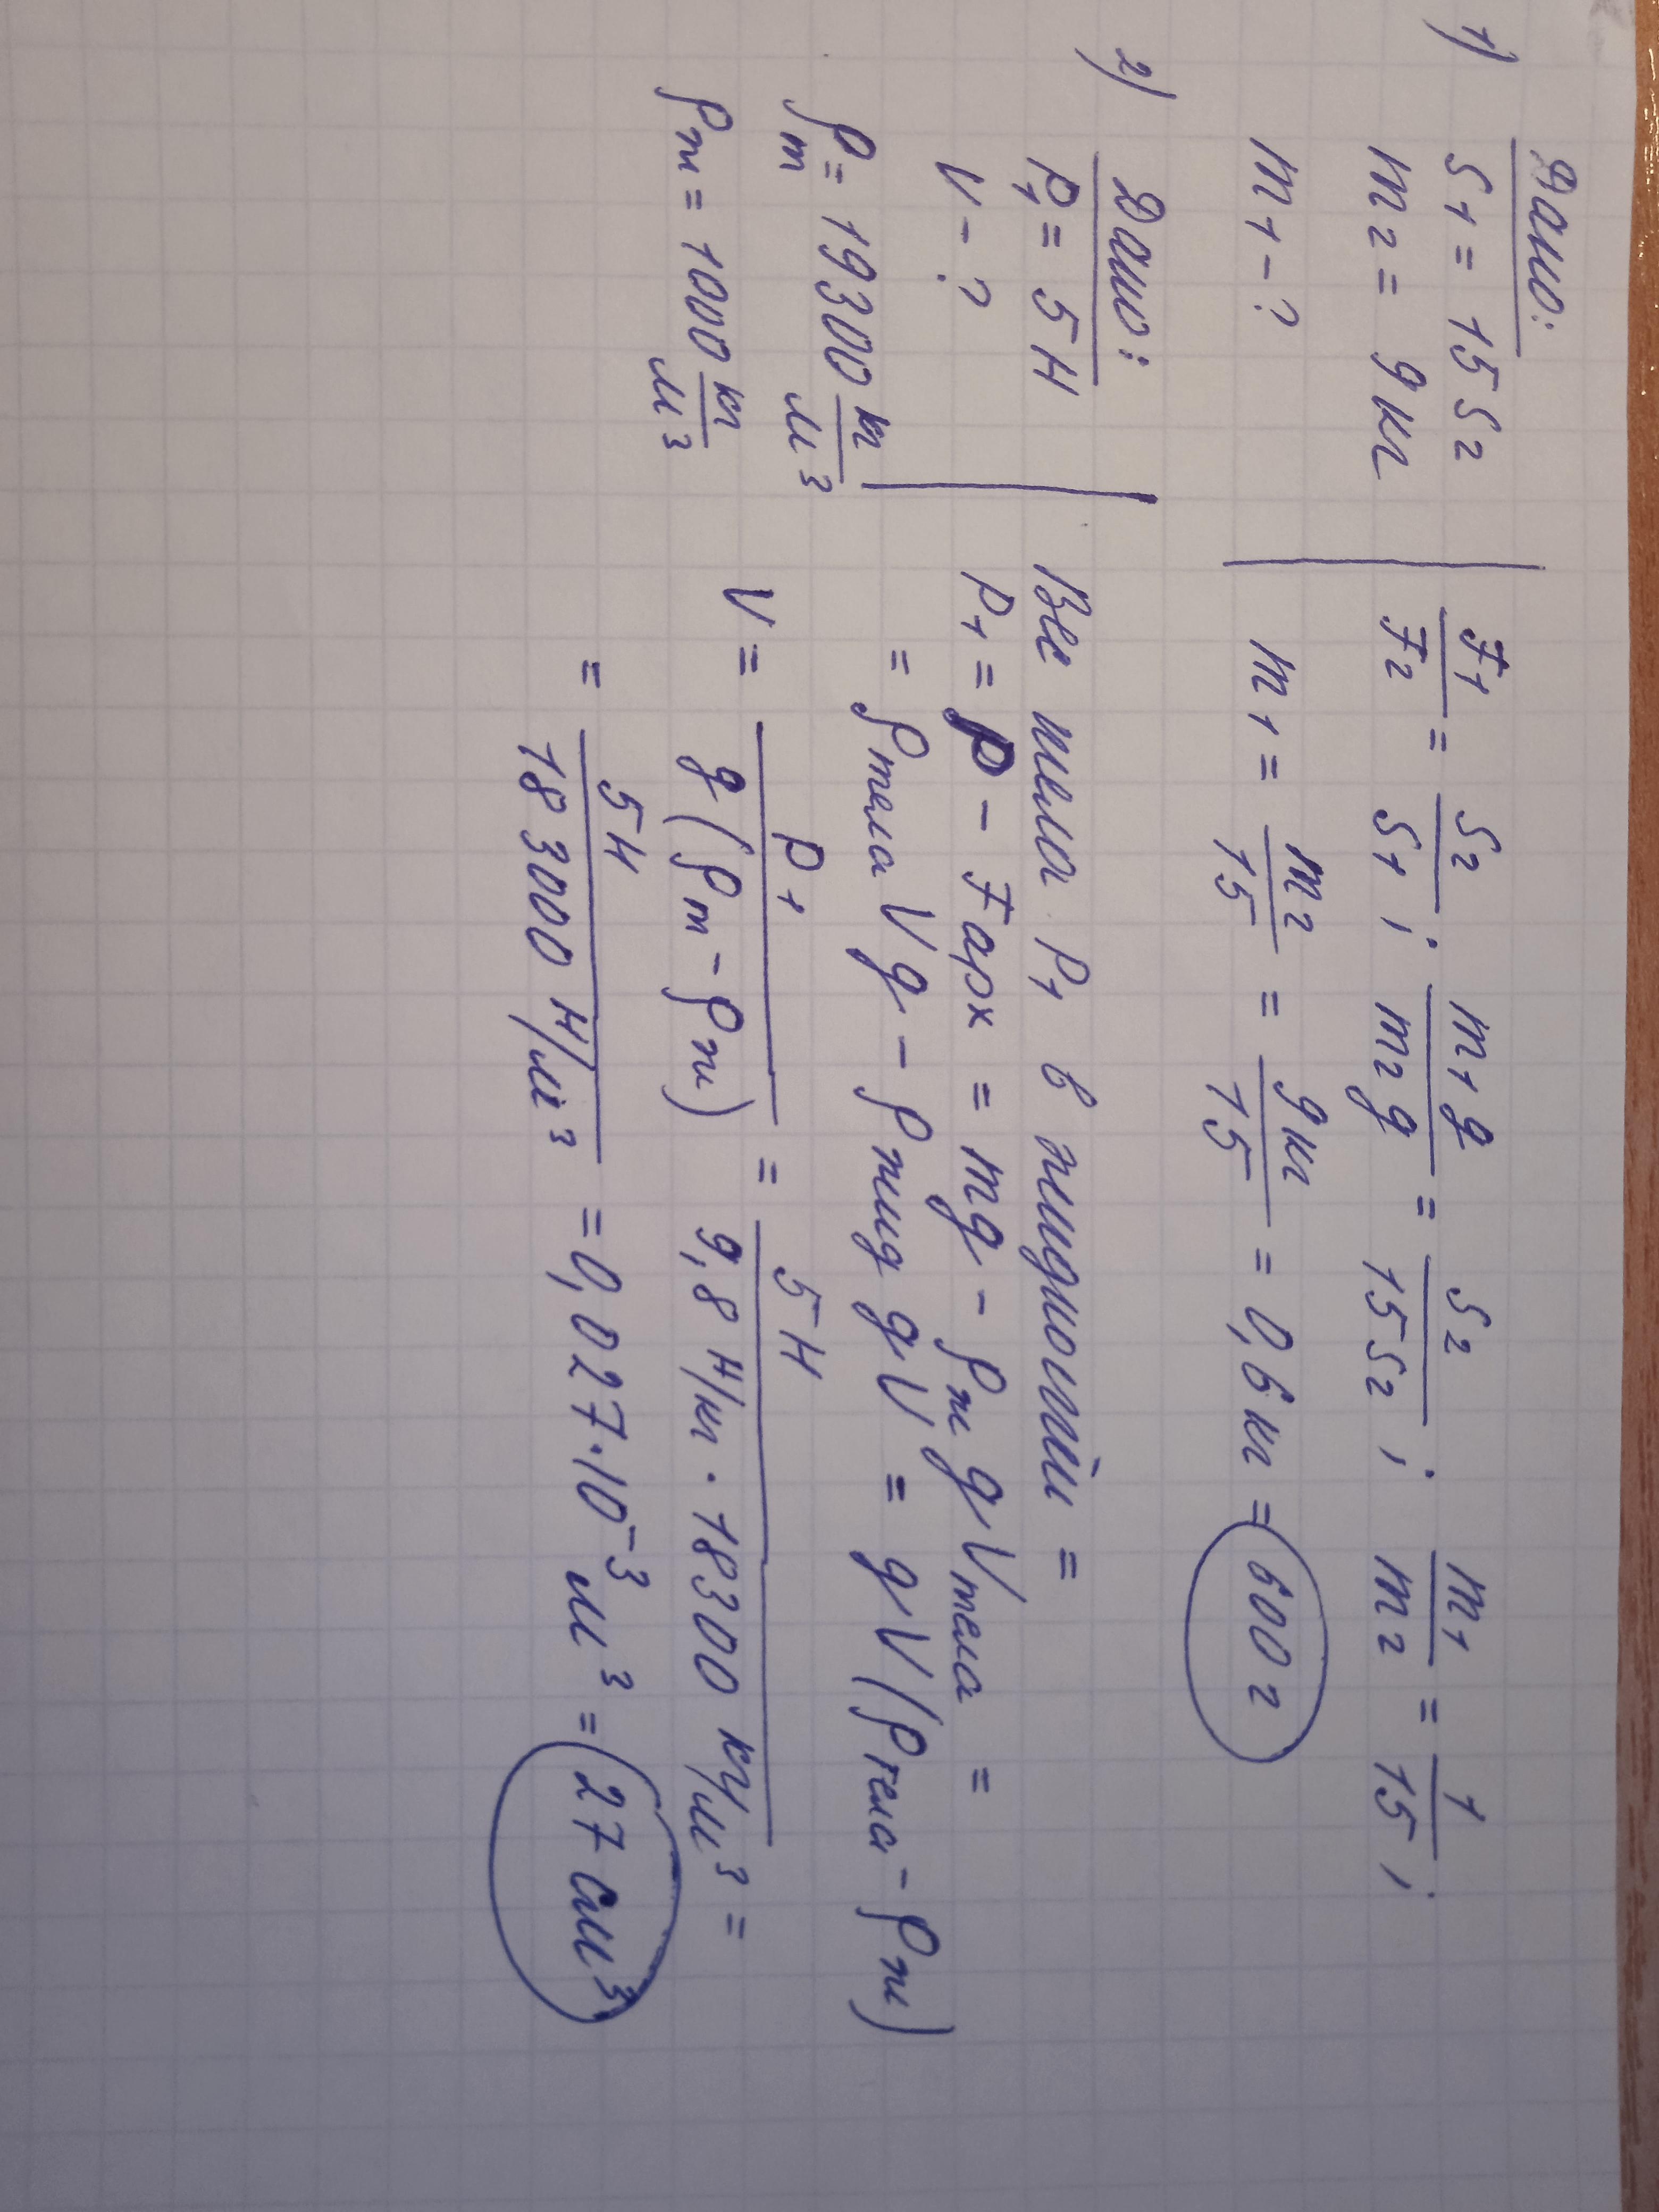 1) Дано:
S₁ = 15 S₂
m₂ = 9 кг
m₁ - ?
F₁/F₂ = S₂/S₁ ; m₁g/m₂g = S₂/15S₂ ; m₁/m₂ = 1/15 ;
m₁ = m₂/15 = 9кг/15 = 0,6 кг = 600 г
2) Дано:
P₁ = 5 Н
V - ?
ρт = 19300 кг/м³
ρж = 1000 кг/м³
Вес тела P₁ в жидкости =
P₁ = P - Fарх = mg - ρж g Vтела =
= ρтела Vg - ρжид gV = gV(ρтела - ρж)
V = P₁/g(ρт - ρж) = 5 Н/9,8 Н/кг · 18300 кг/м³ =
= 5 Н/183000 Н/м³ = 0,027·10⁻³ м³ = 27 см³